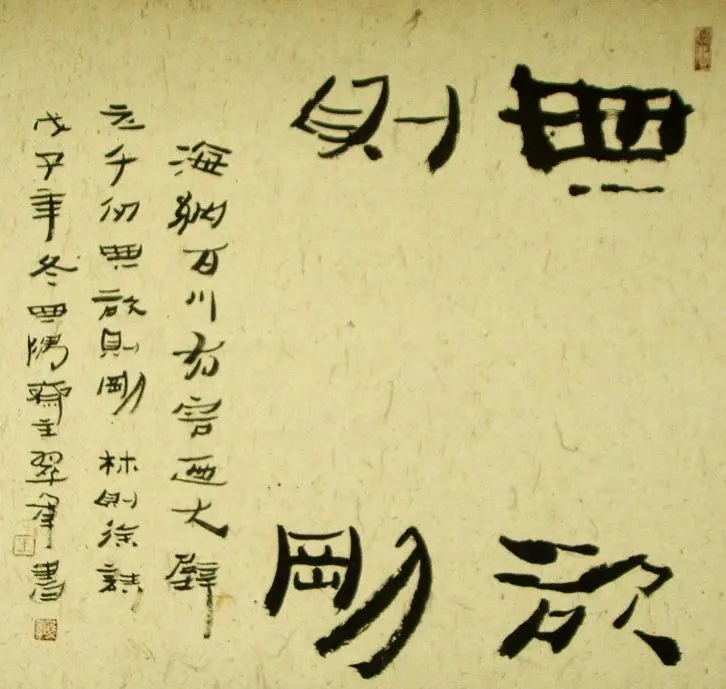 無欲
則剛
海納百川有容迺大壁
立千仞無欲則剛 林則徐
戊子年冬無隅齋主翠峯書